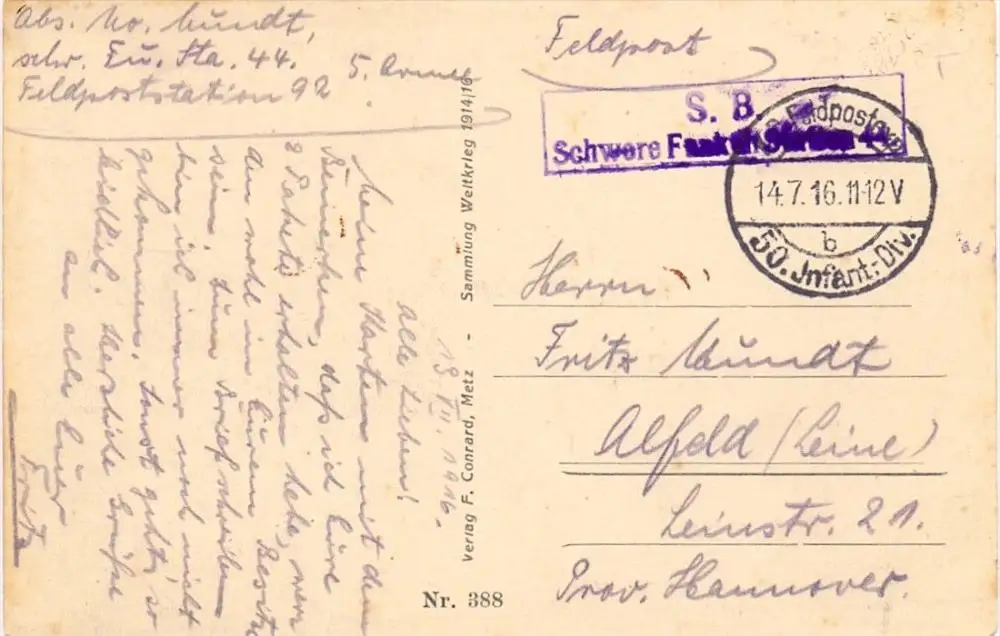 Abs. Uo. Mundt,
schr. Fu. Sta. 44.
Feldpoststation 92
5. Armee
Feldpost
S. B.
Schwere Funken Station 44
Feldpostexp.
14.7.16.11-12V
b
50. Infant.-Div.
13. VII. 1916.
Alle Lieben!
Meine Karten mit dem
daß ich Eure
2 Pakete erhalten habe, wer-
den wohl in Eurem Besitz
sein. Zum Briefschreiben
bin ich immer noch nicht
gekommen. Sonst geht's so
Herzliche Grüße
an alle Euer
Fritz
Verlag F. Conrard, Metz - Sammlung Weltkrieg 1914/16
Nr. 388
Herrn
Fritz Mundt
Alfeld (Leine)
Leinstr. 21.
Prov. Hannover.